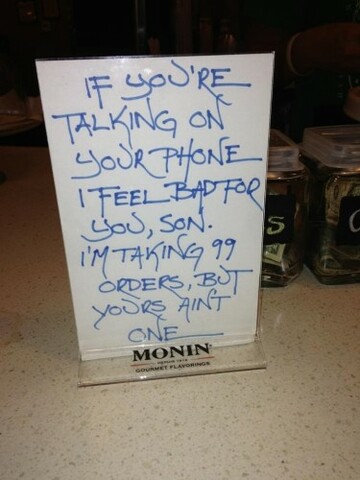 IF YOU'RE
TALKING ON
YOUR PHONE
I FEEL BAD FOR
YOU, SON.
I'M TAKING 99
ORDERS, BUT
YOURS AIN'T
ONE
MONIN
DEPUIS 1912
GOURMET FLAVORINGS
S